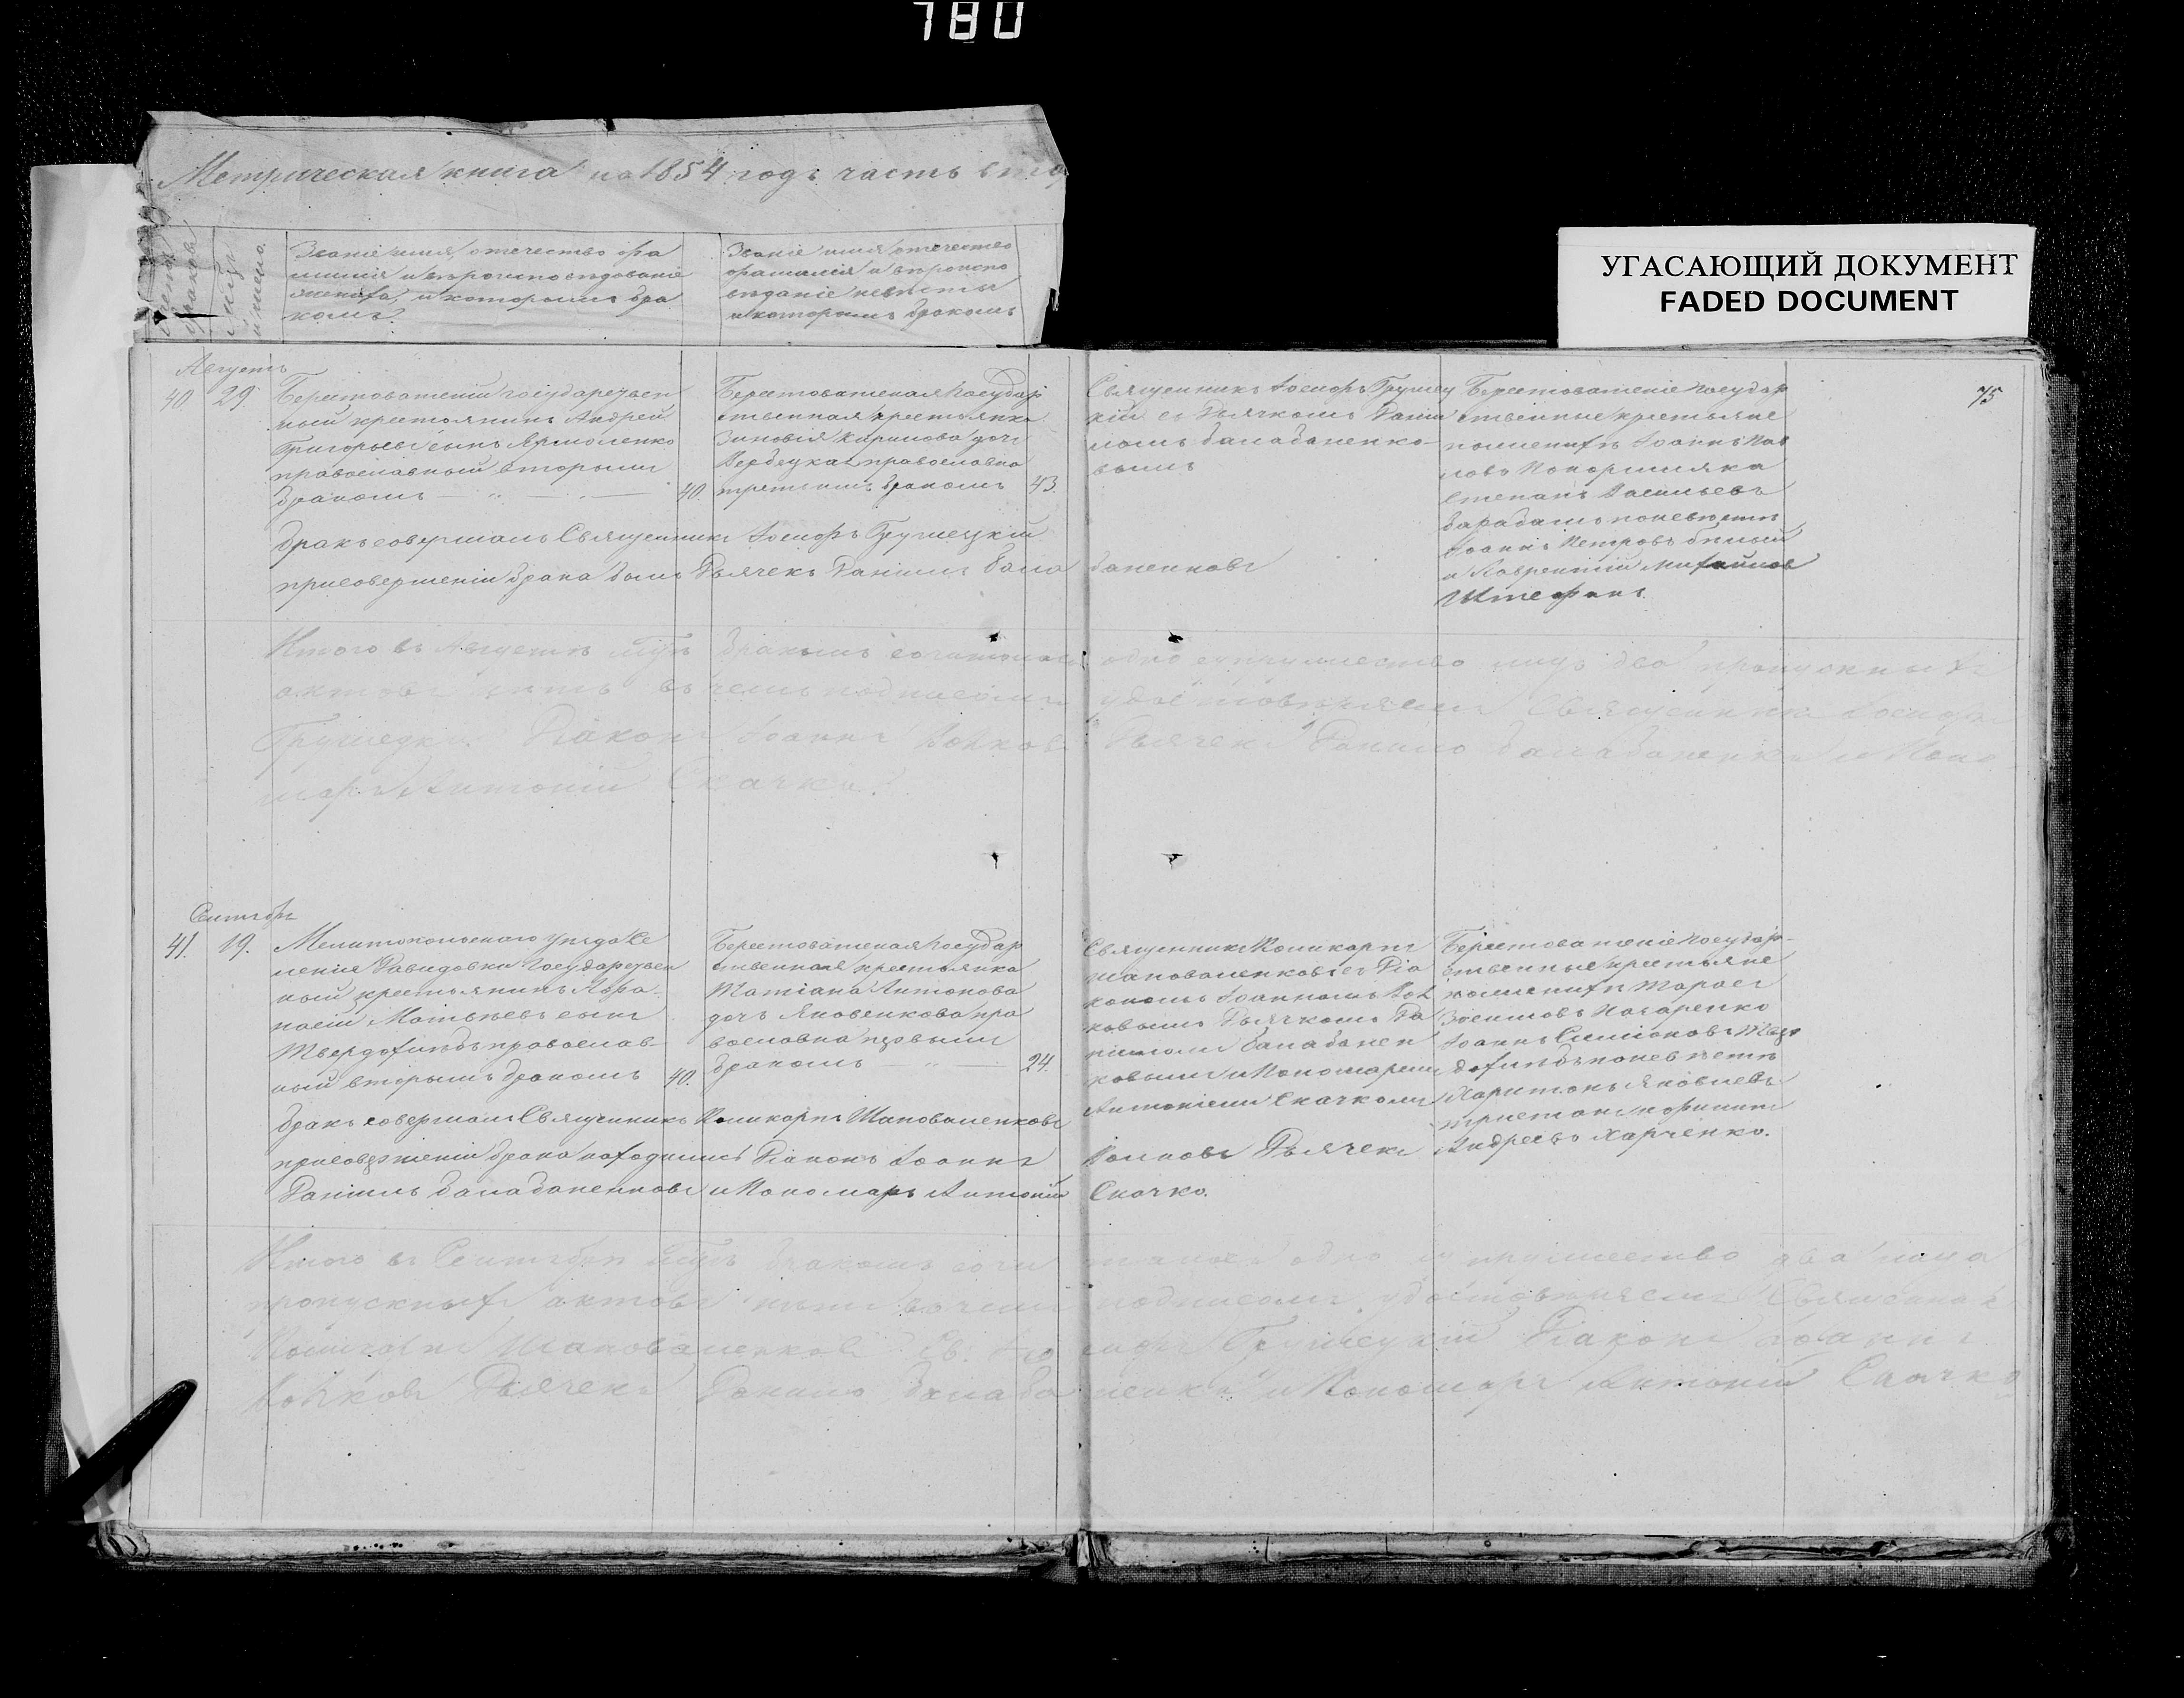 780
УГАСАЮЩИЙ ДОКУМЕНТ
FADED DOCUMENT
Метрическая книга на 1854 годъ часть вто
Званіе имя, отечество фа
милія и вѣроисповѣдованіе
жениха, и которымъ бра
комъ.
Званіе имя отечество
фамилія и вѣроиспо
вѣданіе невѣсты
и которымъ бракомъ
75
Августъ
40 29.
Берестоватскій государствен
ный крестьянинъ Андрей
Григорьевъ сынъ Ярмоленко
православный вторымъ
бракомъ
40.
Берестоватская государ
ственная крестьянка
Зиновія Карпова дочь
православна
третьимъ бракомъ
43.
Священникъ Іосифъ Грушец
кій съ Дьячкомъ Данiи
ломъ Балабаненко-
вымъ
Берестоватскіе государ
ственные крестьяне
по женихѣ Іоаннъ Пав
ловъ
Степанъ Васильевъ
по невѣстѣ
Іоаннъ Петровъ Бѣлый
и Лаврентій Михайловъ
Штефанъ.
бракъ совершалъ Священникъ Іосифъ Грушецкій
при совершеніи брака былъ Дьячекъ Даніилъ Бала
баненковъ
Итого въ Августѣ мцѣ бракомъ сочеталось одно супружество лицъ два пропускныхъ
актовъ нѣтъ въ чемъ подписомъ удостовѣряемъ Священникъ Іосифъ
Грушецкій Діаконъ Іоаннъ Волковъ Дьячекъ Данило Балабаненко и Поно
марь Антоній Скачко.
Сентябрь
41. 19.
Мелитопольскаго уѣзда се
ленія Давидовки Государствен
ный крестьянинъ Афа-
насій Матвѣевъ сынъ
Твердохлѣбъ православ-
ный вторымъ бракомъ
40.
Берестоватская государ
ственная крестьянка
Татіана Антонова
дочь Яковенкова пра
вославна первымъ
бракомъ
24.
Священникъ Поликарпъ
Шаповаленковъ съ Діа
кономъ Іоанномъ Вол
ковымъ Дьячкомъ Да
ніиломъ Балабанен
ковымъ и Пономаремъ
Антоніемъ Скачкомъ
Берестоватскіе государ-
ственные крестьяне
по женихѣ Тарасъ
Зосимовъ Назаренко
Іоаннъ Симіоновъ Твер
дохлѣбъ по невѣстѣ
Харитонъ Яковлевъ
Андреевъ Харченко.
бракъ совершалъ Священникъ Поликарпъ Шаповаленковъ
при совершеніи брака находились Діаконъ Іоаннъ Волковъ Дьячекъ
Даніилъ Балабаненковъ и Пономарь Антоній Скачко.
Итого въ Сентябрѣ мцѣ бракомъ сочеталось одно супружество два лица
пропускныхъ актовъ нѣтъ въ чемъ подписомъ удостовѣряемъ Священникъ
Поликарпъ Шаповаленковъ Св. Іосифъ Грушецкій Діаконъ Іоаннъ
Волковъ Дьячекъ Данило Балабаненко и Пономарь Антоній Скачко